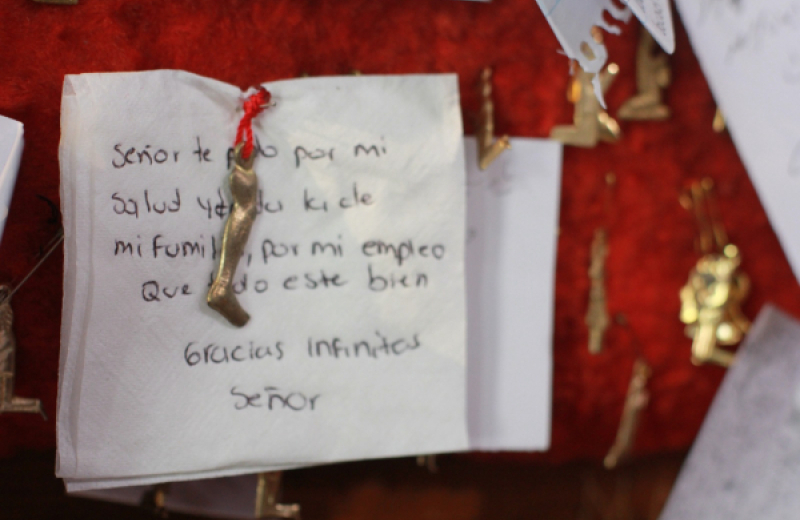 Señor te pido por mi
salud y de
mi familia, por mi empleo
Que todo este bien
Gracias Infinitas
Señor